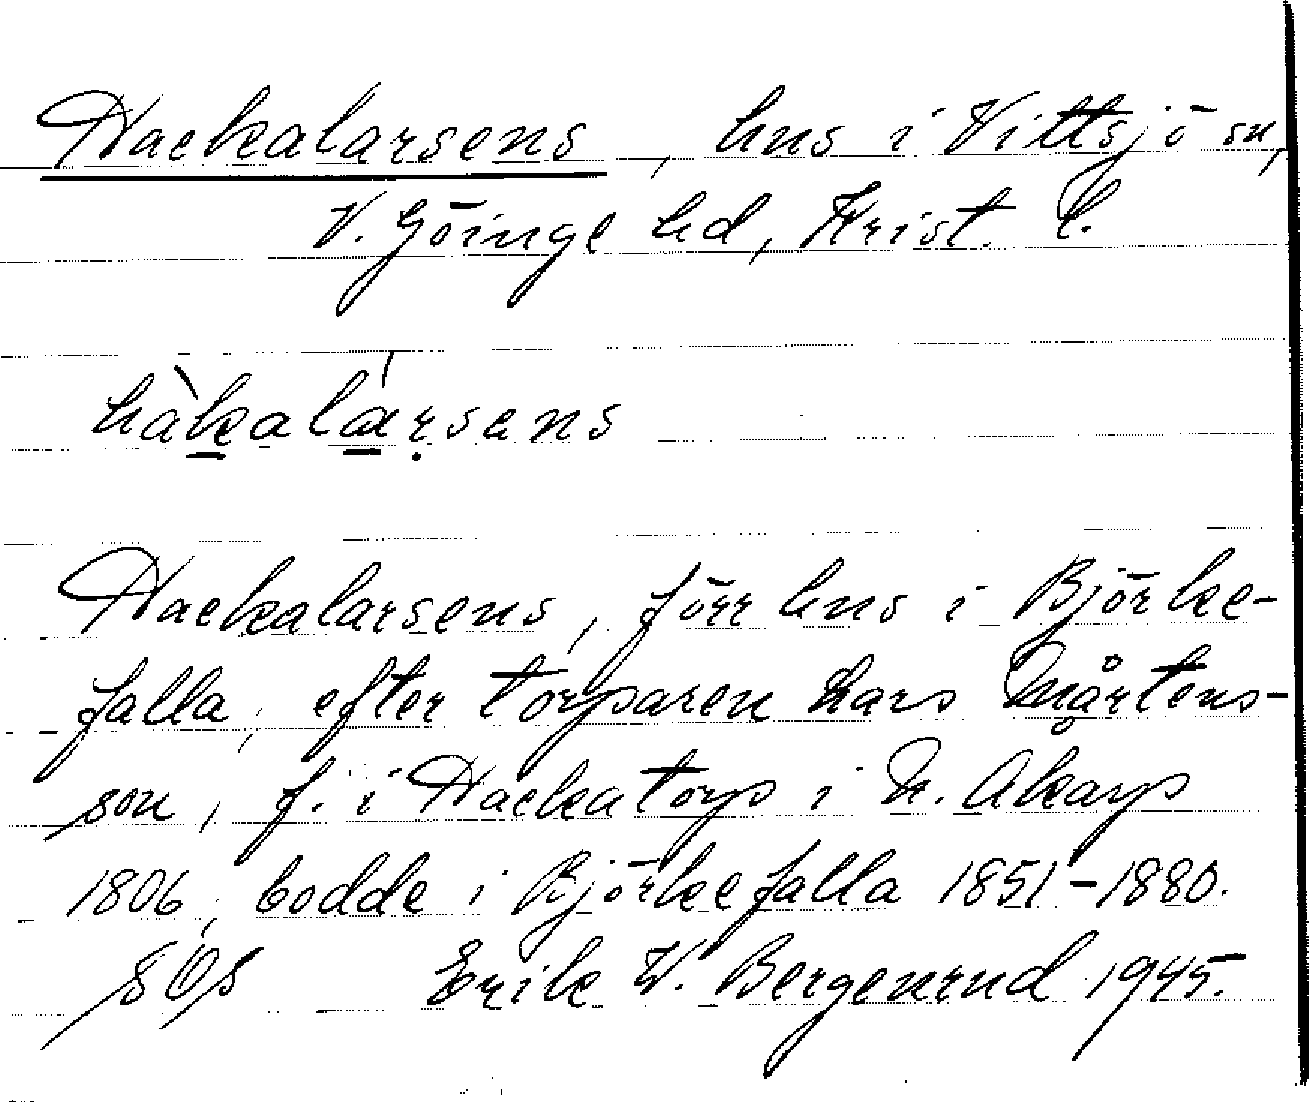 Hackalarsens, hus i Vittsjö sn,
V. Göinge hd, Krist. l.
hàkalársans
Hackalarsens, förr hus i Björke-
falla, efter torparen Lars Mårtens-
son, f. i Hackatorp i N. Åkarp
1806, bodde i Björkefalla 1851-1880.
Erik W. Bergenrud 1945.